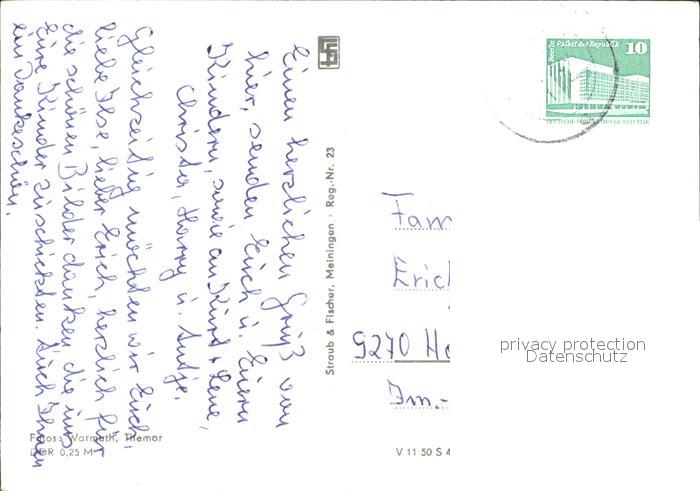 Einen herzlichen Gruß von
hier, senden Euch u. Euern
Kindern, sowie an Kurt + Lene,
Christa, Harry u. Antje.
Gleichzeitig möchten wir Euch,
liebe Ilse, lieber Erich, herzlich für
die schönen Bilder danken, die uns
Eure Kinder zuschickten. Auch Ihnen
ein Dankeschön.
Fotos: Warmuth, Themar
DDR 0,25 M
Straub & Fischer, Meiningen · Reg.-Nr. 23
V 11 50 S 4
Berlin Palast der Republik 10
DEUTSCHE DEMOKRATISCHE REPUBLIK
Fam
Erich
9270 Ho
Im.-
privacy protection
Datenschutz